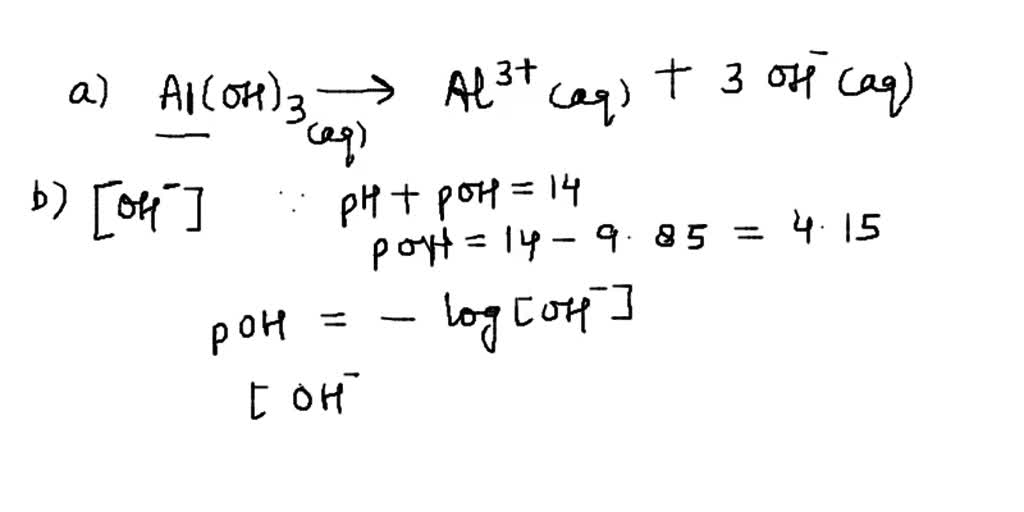 a) Al(OH)3(aq) → Al3+ (aq) + 3 OH- (aq)
b) [OH-] ∵ pH + pOH = 14
pOH = 14 - 9.85 = 4.15
pOH = - log [OH-]
[ OH-